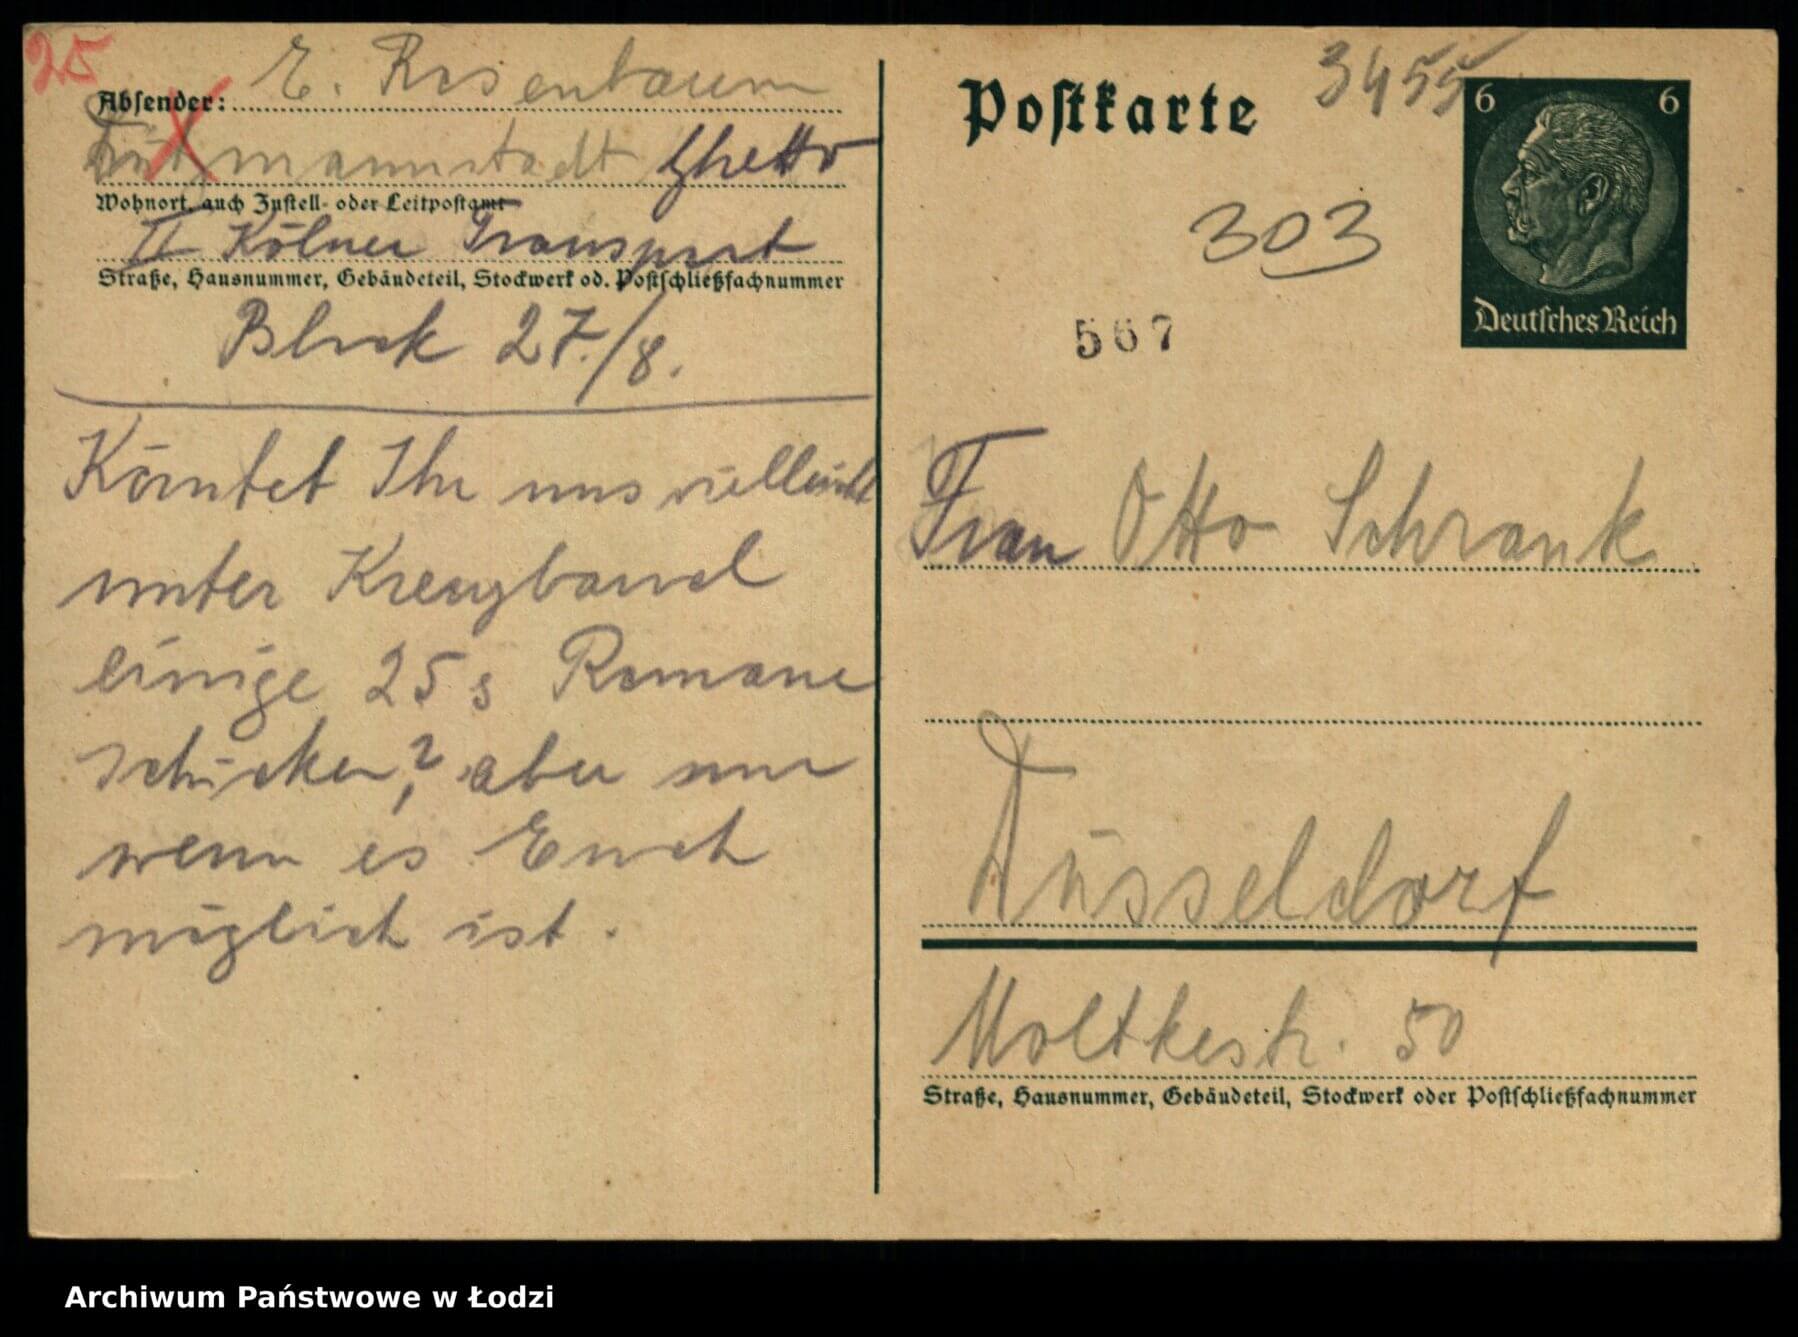 25
Absender: E. Rosenbaum
Litzmannstadt Ghetto
Wohnort, auch Zustell- oder Leitpostamt
II Kölner Transport
Straße, Hausnummer, Gebäudeteil, Stockwerk od. Postschließfachnummer
Block 27./8.
Könntet Ihr uns vielleicht
unter Kreuzband
einige 25 s Romane
schicken? aber nur
wenn es Euch
möglich ist.
Postkarte
3455
6 6
Deutsches Reich
303
567
Frau Otto Schrank
Düsseldorf
Moltkestr. 50
Straße, Hausnummer, Gebäudeteil, Stockwerk oder Postschließfachnummer
Archiwum Państwowe w Łodzi